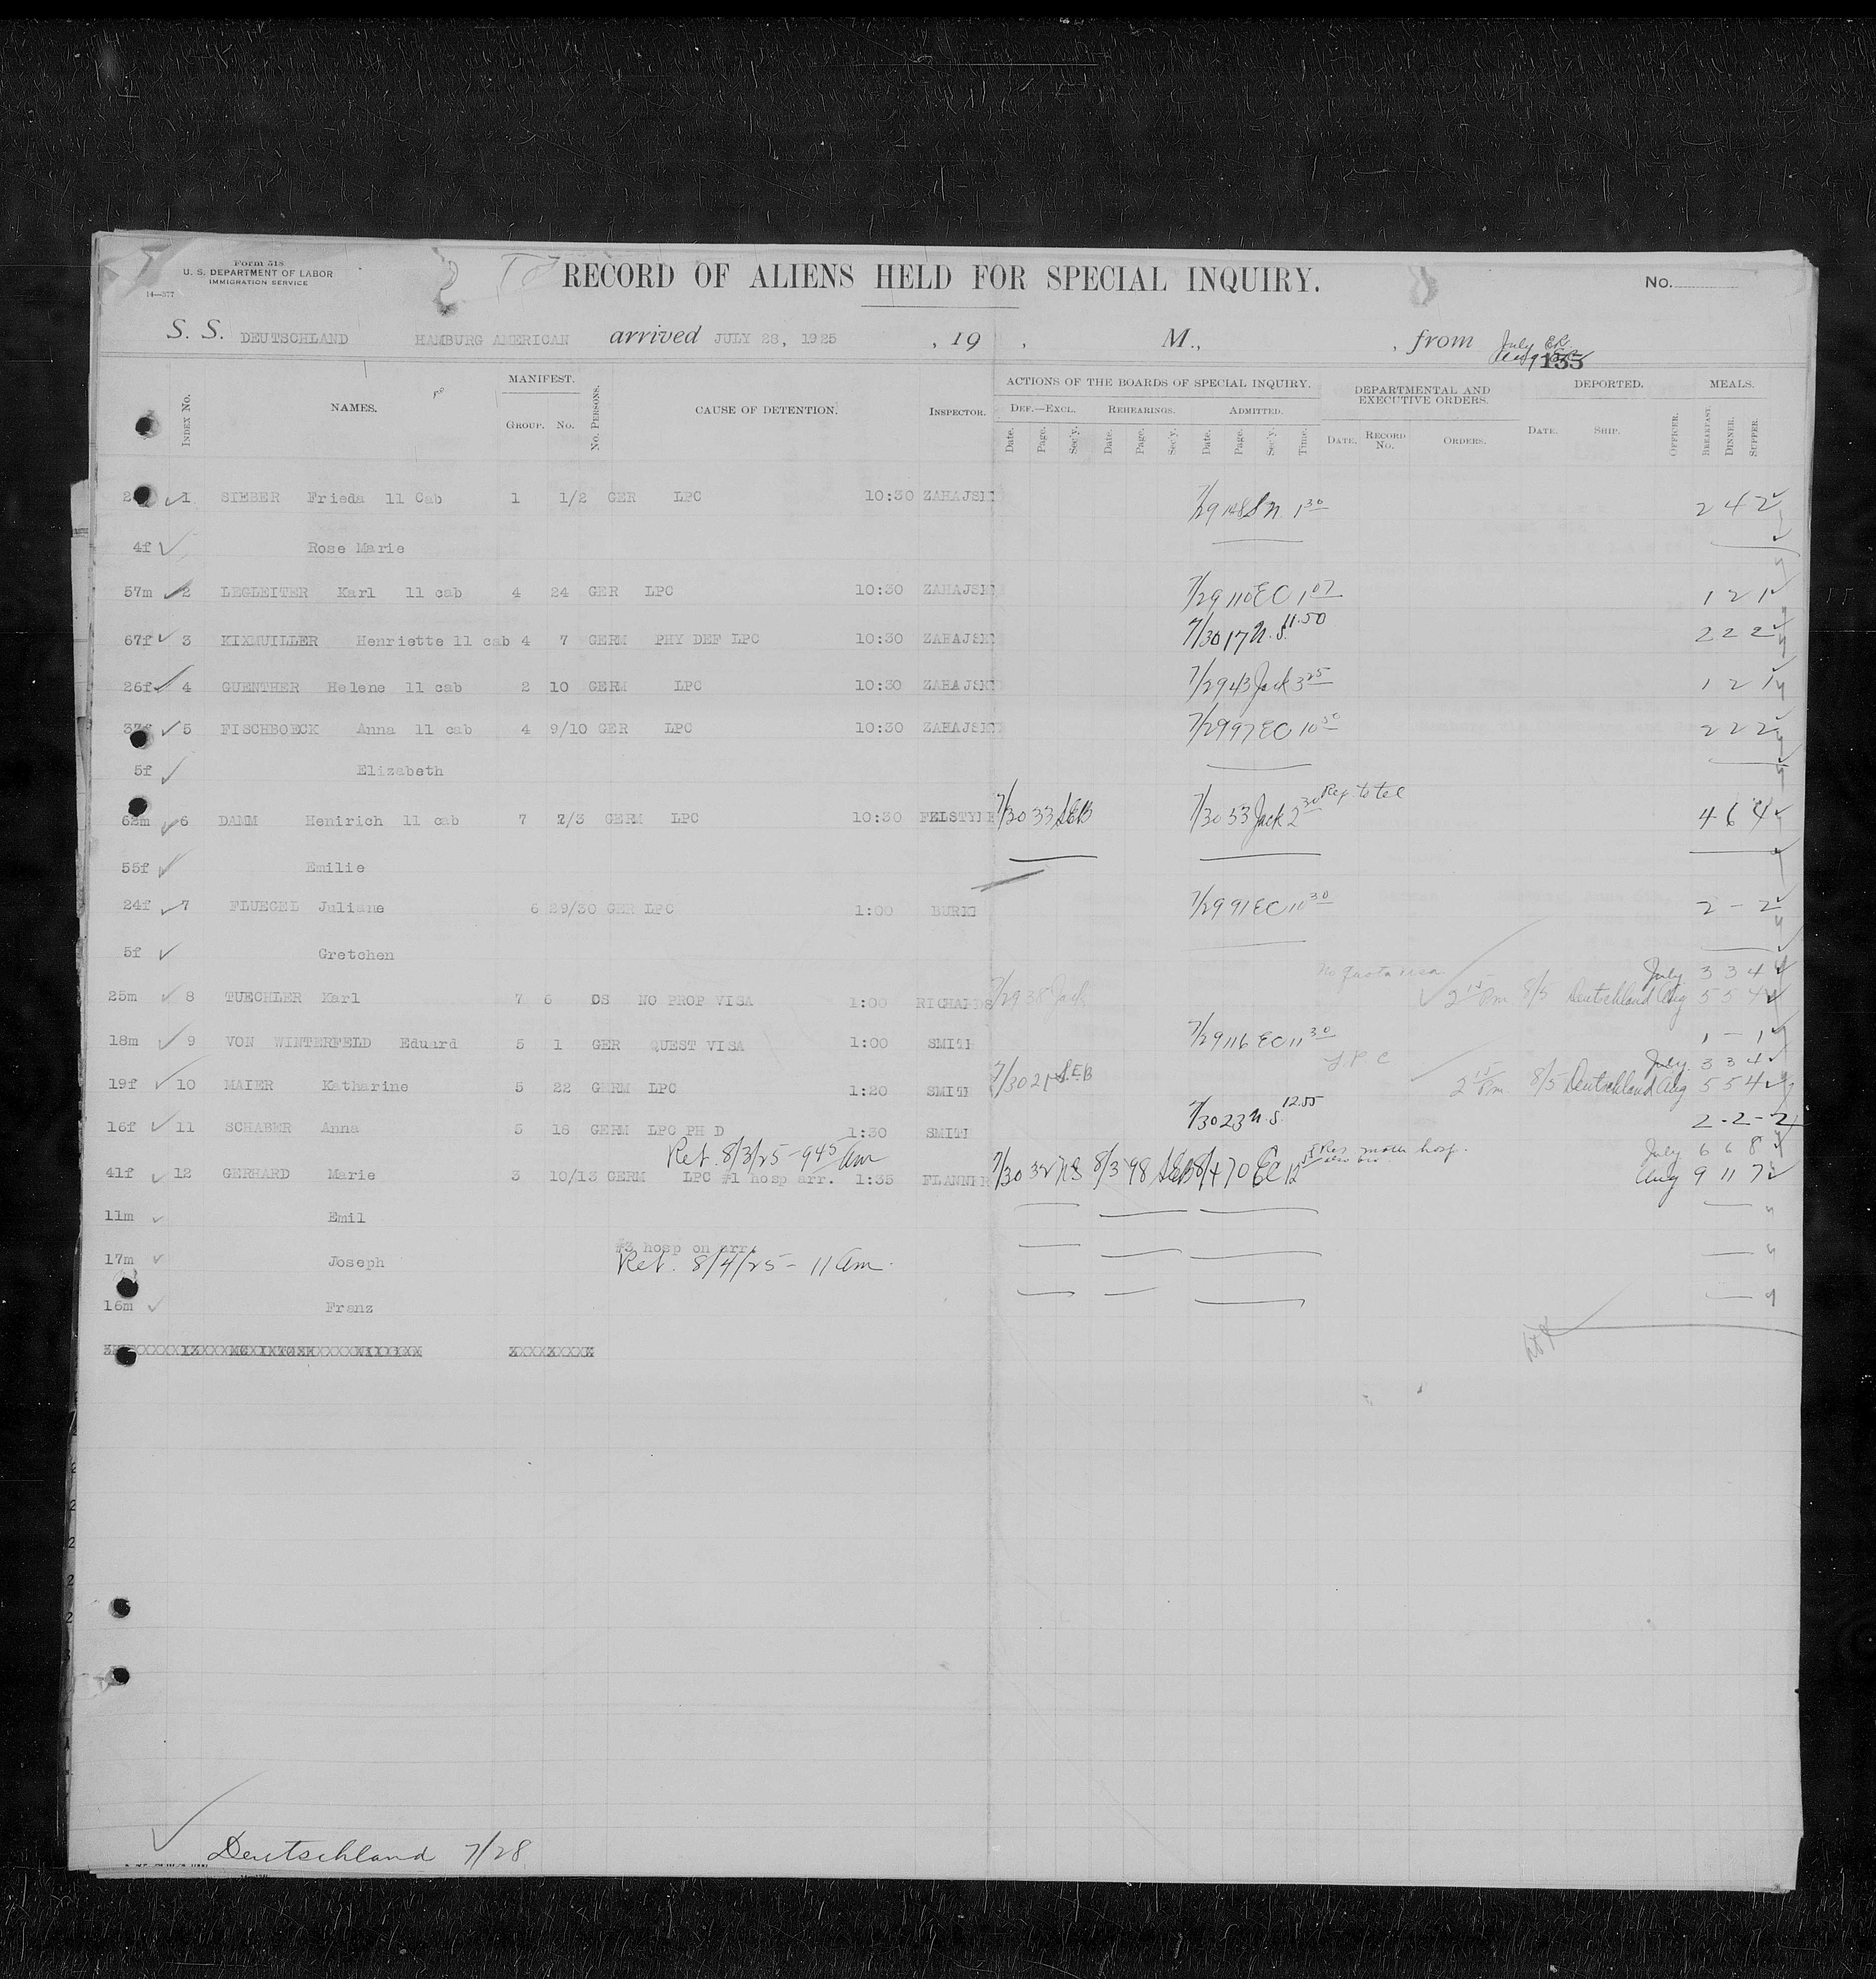 Form 518
U. S. DEPARTMENT OF LABOR
IMMIGRATION SERVICE
14—377
RECORD OF ALIENS HELD FOR SPECIAL INQUIRY.
No.
S. S. DEUTSCHLAND HAMBURG AMERICAN arrived JULY 28, 1925 , 19 , M., , from July E.C.
Aug 133
NAMES. MANIFEST. CAUSE OF DETENTION. INSPECTOR. ACTIONS OF THE BOARDS OF SPECIAL INQUIRY. DEPARTMENTAL AND EXECUTIVE ORDERS. DEPORTED. MEALS.
INDEX No. GROUP. No. No. PERSONS. DEF.—EXCL. REHEARINGS. ADMITTED.
Date. Page. Sec'y. Date. Page. Sec'y. Date. Page. Sec'y. Time. DATE. RECORD No. ORDERS. DATE. SHIP. OFFICER. BREAKFAST. DINNER. SUPPER.
1 SIEBER Frieda 11 Cab 1 1/2 GER LPC 10:30 ZAHAJSKI 7/29 148 S N. 1 30 2 4 2
4f Rose Marie
57m 2 LEGLEITER Karl 11 cab 4 24 GER LPC 10:30 ZAHAJSKI 7/29 110 EC 1 07 1 2 1
67f 3 KIXMUILLER Henriette 11 cab 4 7 GERM PHY DEF LPC 10:30 ZAHAJSKI 7/30 17 N.S. 11.50 2 2 2
26f 4 GUENTHER Helene 11 cab 2 10 GERM LPC 10:30 ZAHAJSKI 7/29 43 Jack 3 25 1 2 1
37f 5 FISCHBOECK Anna 11 cab 4 9/10 GER LPC 10:30 ZAHAJSKI 7/29 97 EC 10 30 2 2 2
5f Elizabeth
62m 6 DAMM Henirich 11 cab 7 2/3 GERM LPC 10:30 FELSTYNE 7/30 33 SEB 7/30 53 Jack 2 30 Rep. to tel 4 6 4
55f Emilie
24f 7 FLUEGEL Juliane 6 29/30 GER LPC 1:00 BURKI 7/29 91 EC 10 30 2 - 2
5f Gretchen
No quota visa July 3 3 4
25m 8 TUECHLER Karl 7 6 DS NO PROP VISA 1:00 RICHARDS 7/29 38 Jack 2 15 Pm 8/5 Deutschland Aug 5 5 4
18m 9 VON WINTERFELD Eduard 5 1 GER QUEST VISA 1:00 SMITH 7/29 116 EC 11 30 1 - 1
L P C July 3 3 4
19f 10 MAIER Katharine 5 22 GERM LPC 1:20 SMITH 7/30 21 S.E.B 2 15 Pm 8/5 Deutschland Aug 5 5 4
16f 11 SCHABER Anna 5 18 GERM LPC PH D 1:30 SMITH 7/30 23 N.S. 12.55 2 - 2 - 2
Ret. 8/3/25 - 9 45 am July 6 6 8
41f 12 GERHARD Marie 3 10/13 GERM LPC #1 hosp arr. 1:35 FLANNER 7/30 32 NS 8/3 98 SEB 8/4 70 EC 12 hosp. Aug 9 11 7
11m Emil
#3 hosp on arr.
17m Joseph Ret. 8/4/25 - 11 am.
16m Franz
Deutschland 7/28